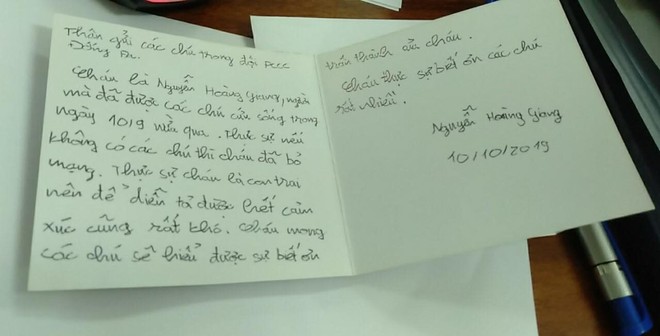 Thân gửi các chú trong đội PCCC
Đống Đa.
Cháu là Nguyễn Hoàng Giang, người
mà đã được các chú cứu sống trong
ngày 10/9 vừa qua. Thực sự nếu
không có các chú thì cháu đã bỏ
mạng. Thực sự cháu là con trai
nên để diễn tả được hết cảm
xúc cũng rất khó. Cháu mong
các chú sẽ hiểu được sự biết ơn
trân thành của cháu.
Cháu thực sự biết ơn các chú
rất nhiều.
Nguyễn Hoàng Giang
10/10/2019